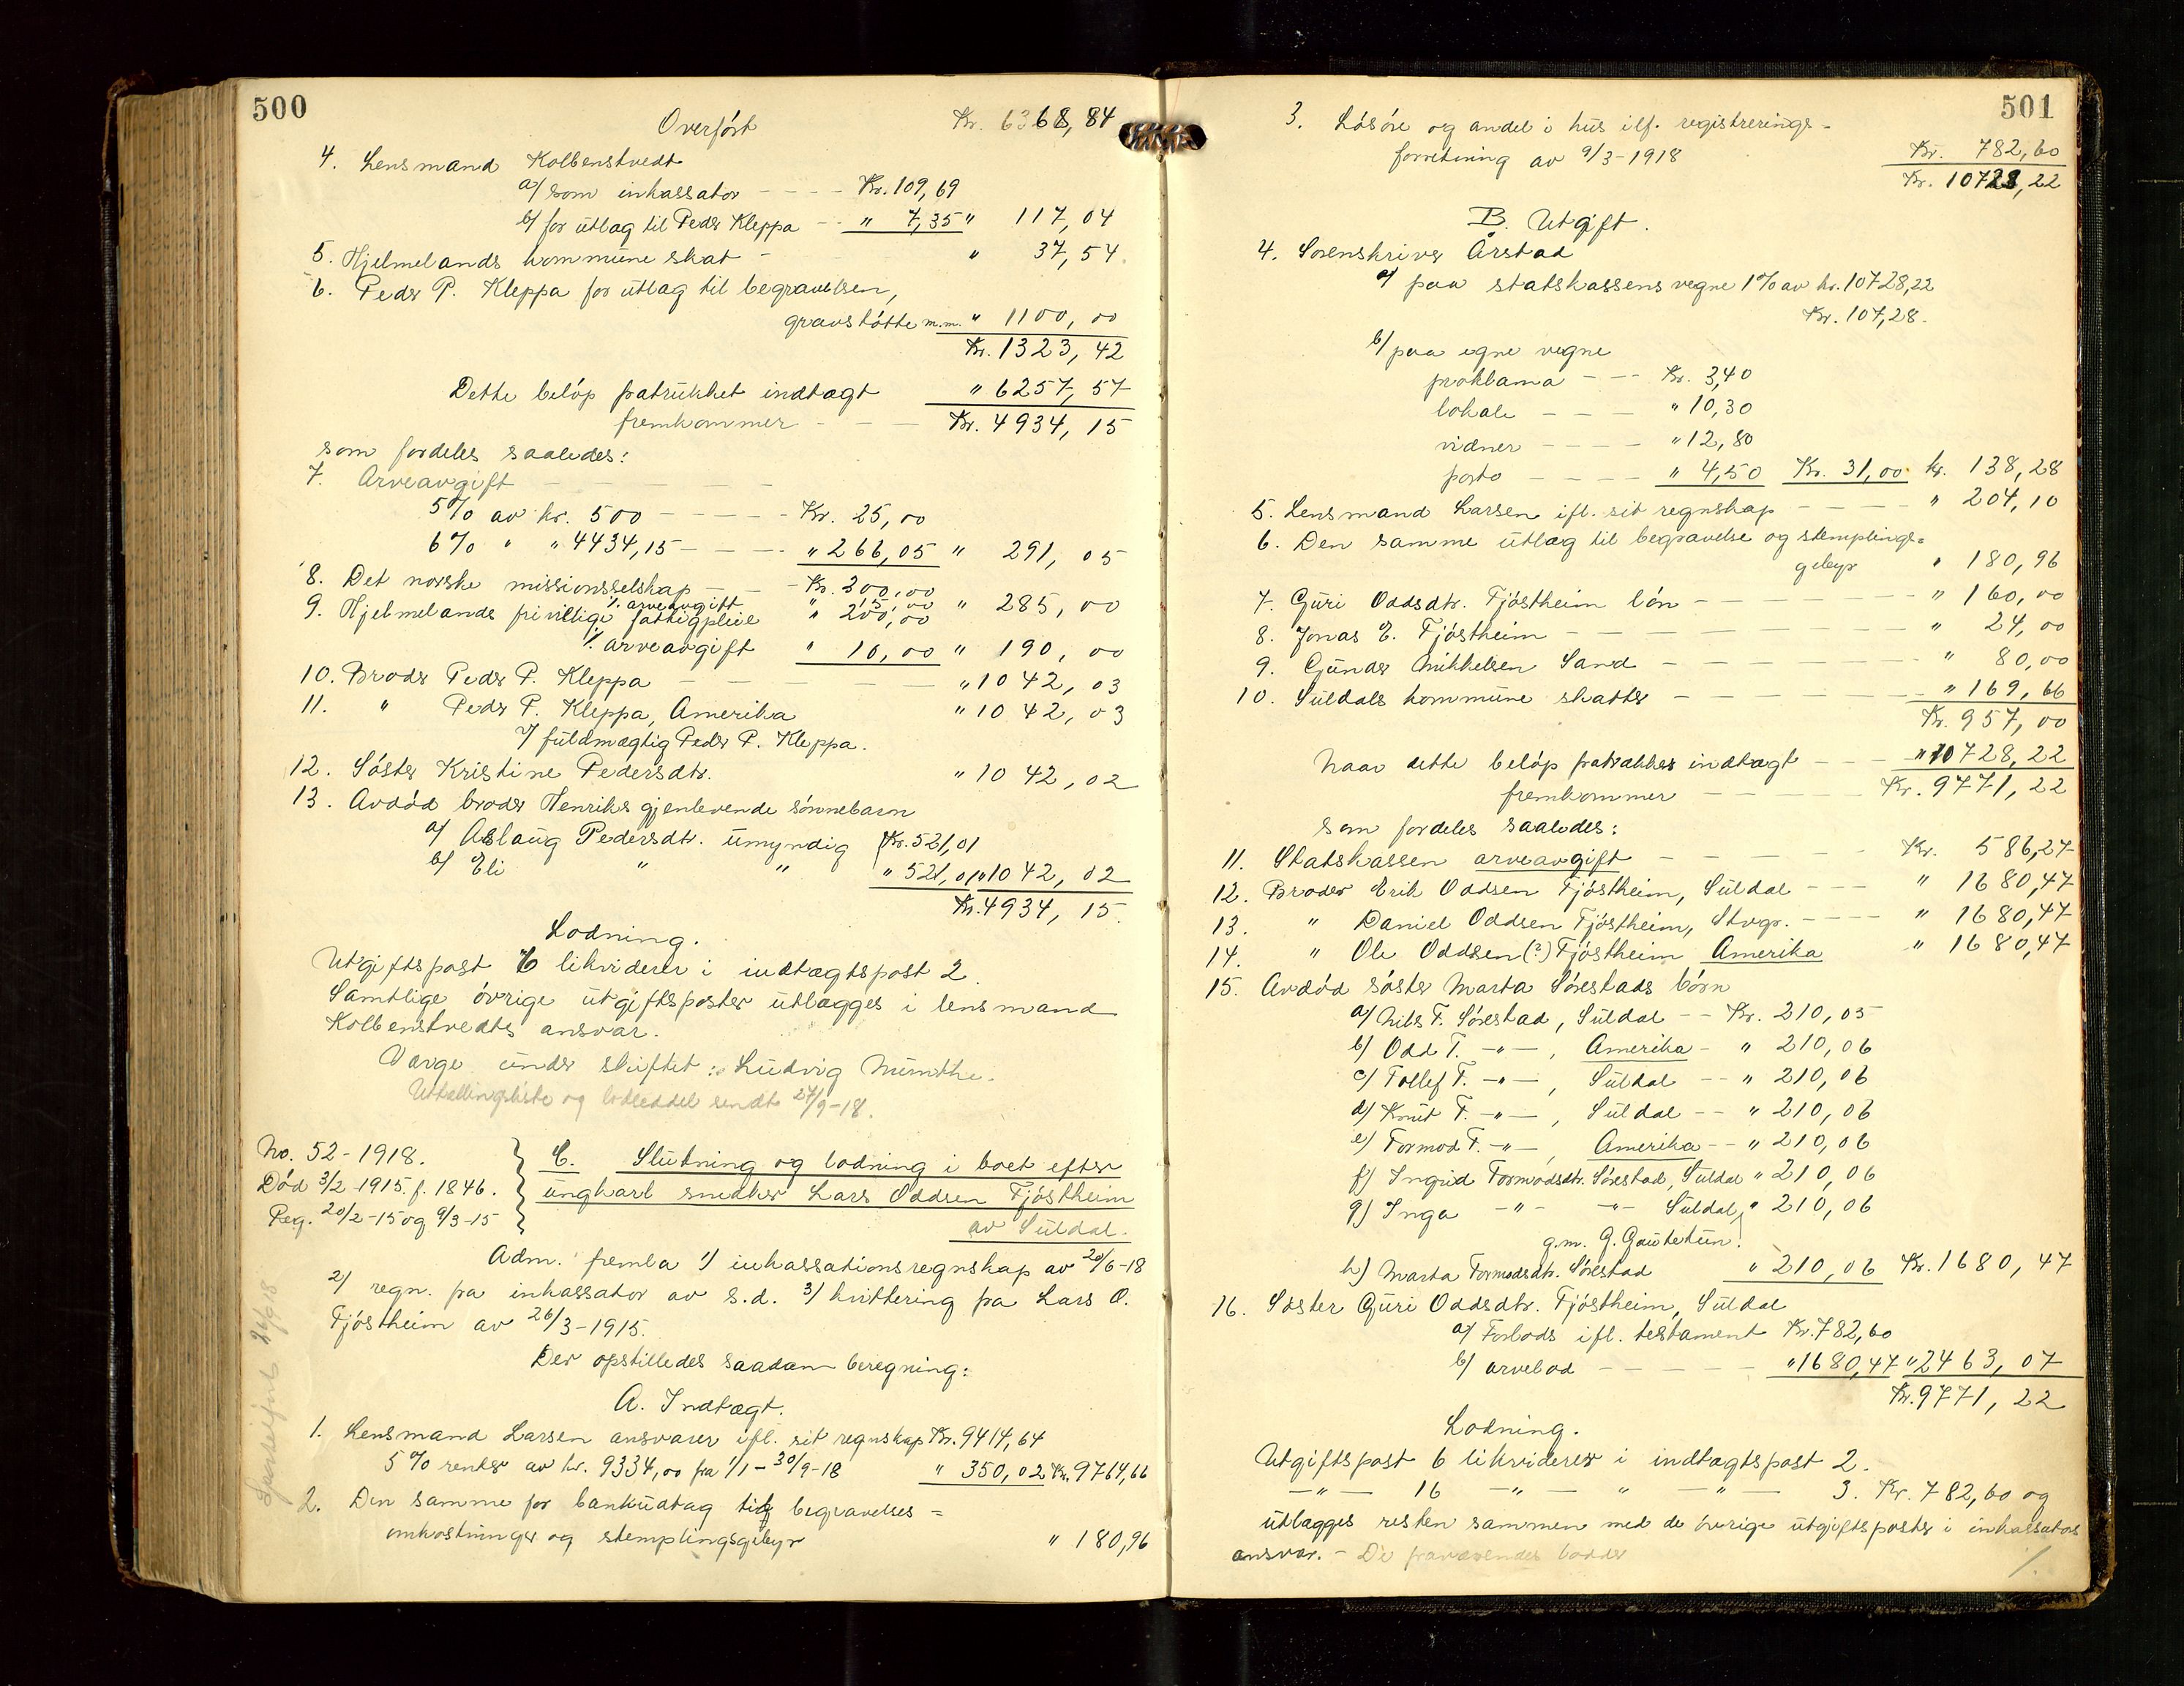 500
Overført Kr. 6368,84
4. Lensmand Kolbenstvedt
a/ som inkassator - - - - Kr. 109,69
b/ for utlag til Peder Kleppa - - " 7,35 " 117,04
5. Hjelmelands kommune skat - " 37,54
6. Peder P. Kleppa for utlag til begravelsen,
gravstøtte m.m. " 1100,00
Kr. 1323,42
Dette beløp fratrukket indtægt " 6257,57
fremkommer - - - Kr. 4934,15
som fordeles saaledes:
7. Arveavgift - - - - -
5% av kr. 500 - - - - - Kr. 25,00
6% " " 4434,15 - - - - " 266,05 " 291,05
8. Det norske missionsselskap - - Kr. 300,00
÷ arveavgift " 15,00 " 285,00
9. Hjelmelands frivillige fattigpleie " 200,00
÷ arveavgift " 10,00 " 190,00
10. Broder Peder P. Kleppa - - - - - " 1042,03
11. " Peder P. Kleppa, Amerika " 1042,03
v/ fuldmægtig Peder P. Kleppa.
12. Søster Kristine Pedersdtr. " 1042,02
13. Avdød broder Henriks gjenlevende sønnebarn
a/ Aslaug Pedersdtr. umyndig Kr. 521,01
b/ Eli " " " 521,01 " 1042,02
Kr. 4934,15.
Lodning.
Utgiftspost 6 likviderer i indtægtspost 2.
Samtlige øvrige utgiftsposter utlægges i lensmand
Kolbenstvedts ansvar.
Værge under skiftet: Ludvig Munthe.
Utdelingsliste og lodseddel sendt 27/9-18.
No. 52-1918.
Død 3/2-1915. f. 1846.
Reg. 20/2-15 og 9/3-15
C. Slutning og lodning i boet efter
ungkarl snedker Lars Oddsen Fjøstheim
av Suldal.
Adm. fremla 1/ inkassationsregnskap av 20/6-18
2/ regn. fra inkassator av s.d. 3/ kvittering fra Lars O.
Fjøstheim av 26/3-1915.
Der opstilledes saadan beregning:
A. Indtægt.
1. Lensmand Larsen ansvarer ifl. sit regnskap Kr. 9414,64
5% renter av kr. 9334,00 fra 1/1-30/9-18 " 350,02 Kr. 9764,66
2. Den samme for bankudtag til begravelses=
omkostninger og stemplingsgebyr " 180,96
501
3. Løsøre og andel i hus ilf. registrerings-
forretning av 9/3-1918 Kr. 782,60
Kr. 10728,22
B. Utgift.
4. Sorenskriver Årstad
a/ paa statskassens vegne 1% av kr. 10728,22
Kr. 107,28.
b/ paa egne vegne
proklama - - - Kr. 3,40
lokale - - - - " 10,30
vidner - - - - " 12,80
porto - - - - " 4,50 Kr. 31,00 kr. 138,28
5. Lensmand Larsen ifl. sit regnskap - - - - " 204,10
6. Den samme utlæg til begravelse og stemplings=
gebyr " 180,96
7. Guri Oddsdtr. Fjøstheim løn - - - - " 160,00
8. Jonas E. Fjøstheim - - - - " 24,00
9. Gunder Mikkelsen Sand - - - - " 80,00
10. Suldals kommune skatter - - - - " 169,66
Kr. 957,00
Naar dette beløp fratrækkes indtægt - - - " 10728,22
fremkommer - - - - Kr. 9771,22
som fordeles saaledes:
11. Statskassen arveavgift - - - Kr. 586,27
12. Broder Erik Oddsen Fjøstheim, Suldal - - - " 1680,47
13. " Daniel Oddsen Fjøstheim, Stvgr. - - - - " 1680,47
14. " Ole Oddsen (?) Fjøstheim Amerika " 1680,47
15. Avdød søster Marta Sørestads børn
a/ Nils T. Sørestad, Suldal - - Kr. 210,05
b/ Odd T. - " - , Amerika - " 210,06
c/ Tollef T. - " - , Suldal - - " 210,06
d/ Knut T. - " - , Suldal - - " 210,06
e/ Tormod T. - " - , Amerika - - " 210,06
f/ Ingrid Tormodsdtr. Sørestad, Suldal " 210,06
g/ Inga - " - - " - Suldal, " 210,06
g.m. G. Gautetun.
h/ Marta Tormodsdtr. Sørestad " 210,06 Kr. 1680,47
16. Søster Guri Oddsdtr. Fjøstheim, Suldal
a/ Forlods ifl. testament Kr. 782,60
b/ arvelod - - - - - " 1680,47 " 2463,07
Kr. 9771,22
Lodning.
Utgiftspost 6 likviderer i indtægtspost 2.
- " - 16 - " - " - " - 3. Kr. 782,60 og
utlægges resten sammen med de øvrige utgiftsposter i inkassators
ansvar. - De fraværendes lodder
/.